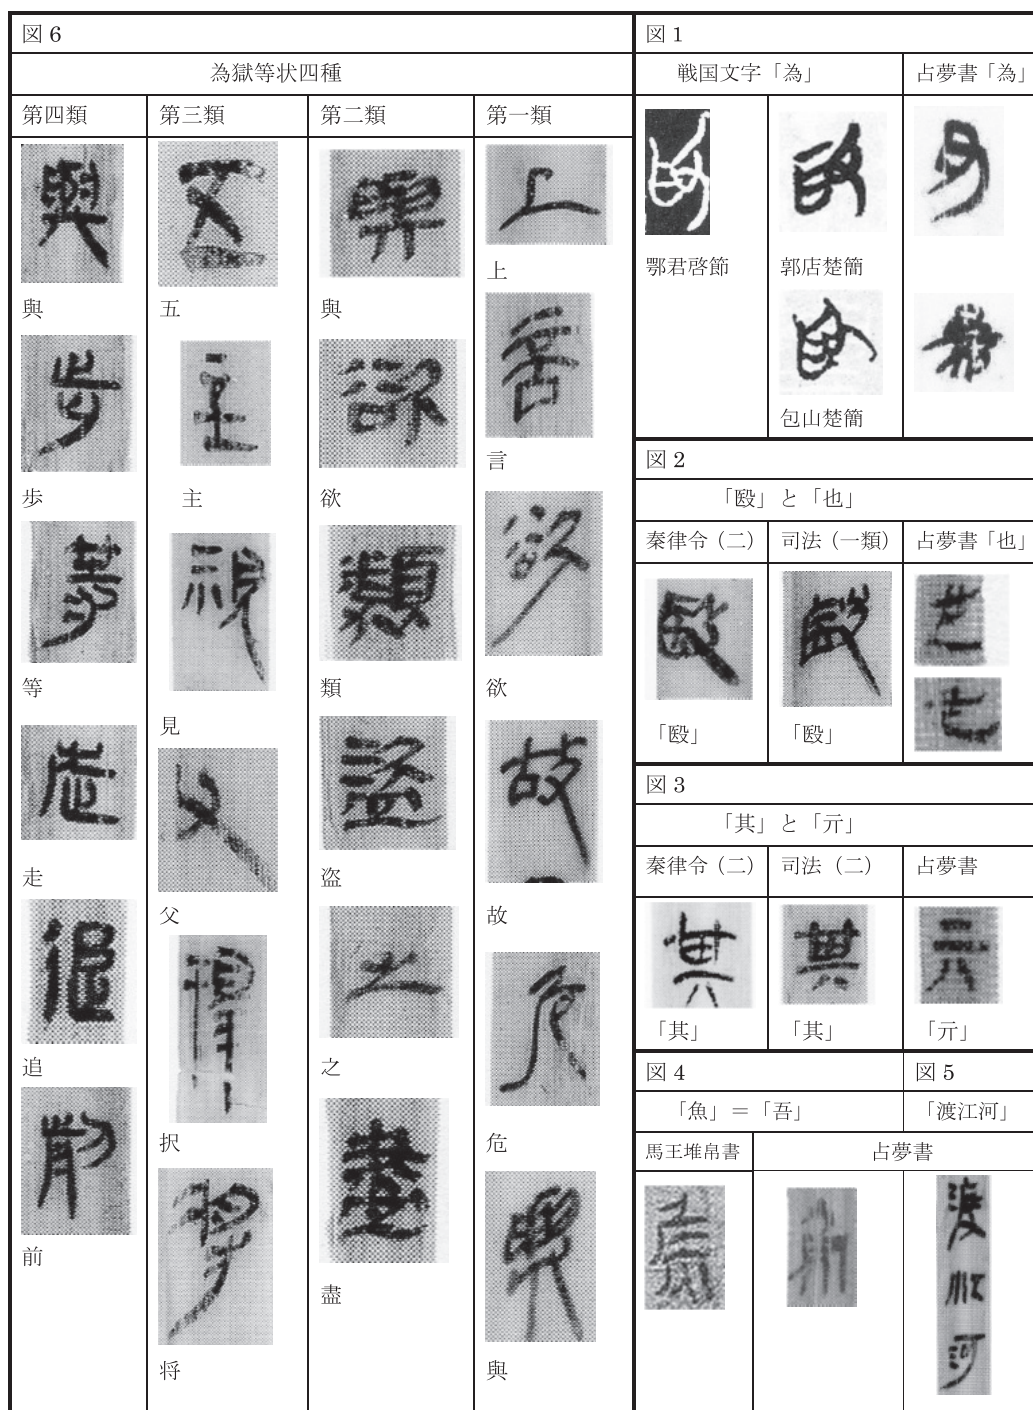 図 6
為獄等状四種
第四類
第三類
第二類
第一類
與
歩
等
走
追
前
五
主
見
父
択
将
與
欲
類
盗
之
盡
上
言
欲
故
危
與
図 1
戦国文字「為」
占夢書「為」
鄂君啓節
郭店楚簡
包山楚簡
図 2
「殹」と「也」
秦律令（二）
司法（一類）
占夢書「也」
「殹」
「殹」
図 3
「其」と「亓」
秦律令（二）
司法（二）
占夢書
「其」
「其」
「亓」
図 4
「魚」＝「吾」
馬王堆帛書
占夢書
図 5
「渡江河」
渡
江
河